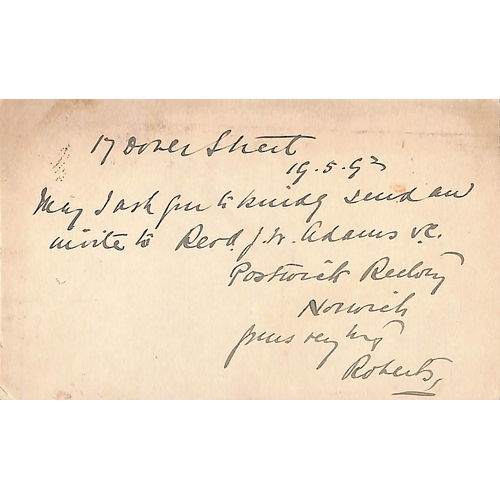 17 Dover Street
19.5.93
May I ask you to kindly send an
invite to Revd J. W. Adams V.C.
Postwick Rectory
Norwich
yours very truly
Roberts,